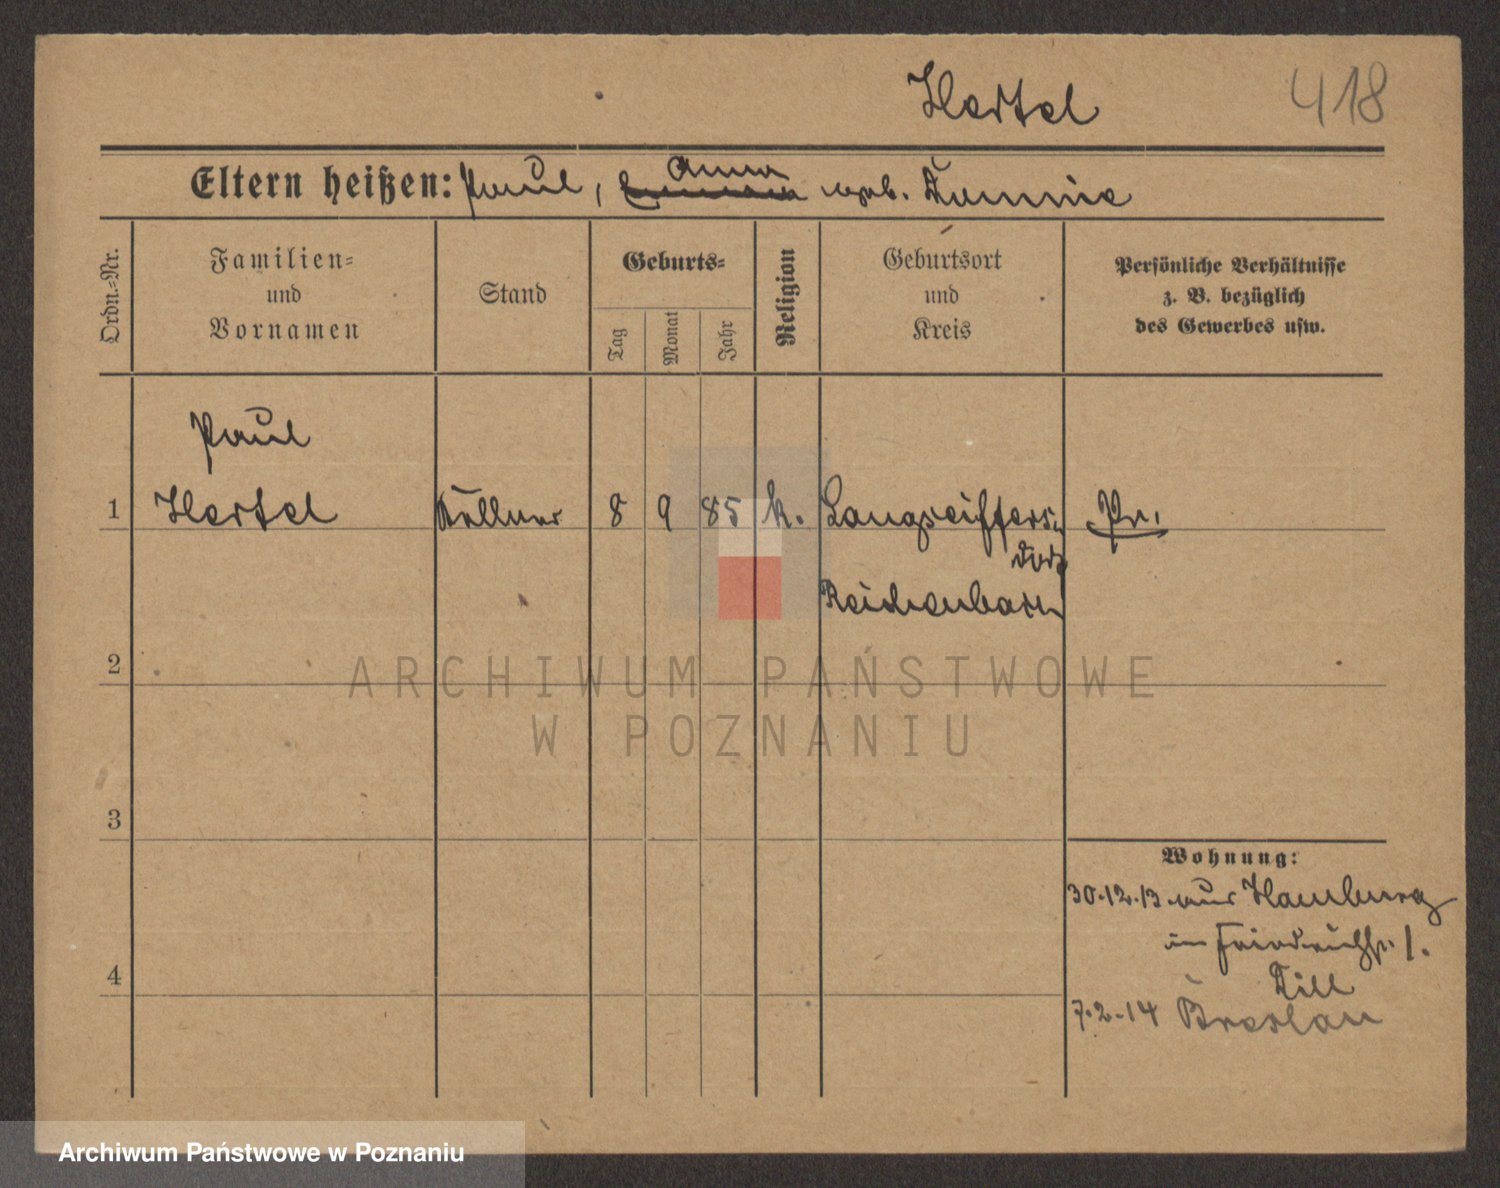 Hertel 418
Eltern heißen: Paul, Anna geb. Dumnie
Ordn.=Nr.
Familien=
und
Vornamen
Stand
Geburts=
Tag
Monat
Jahr
Religion
Geburtsort
und
Kreis
Persönliche Verhältnisse
z. B. bezüglich
des Gewerbes usw.
Paul
1 Hertel Kellner 8 9 85 k. Langseiffers=
dorf
Reichenbach
Pr.
2
ARCHIWUM PAŃSTWOWE
W POZNANIU
3
Wohnung:
30.12.13 aus Hamburg
in Friedrichstr. 1.
4
Dill
7.2.14 Breslau
Archiwum Państwowe w Poznaniu